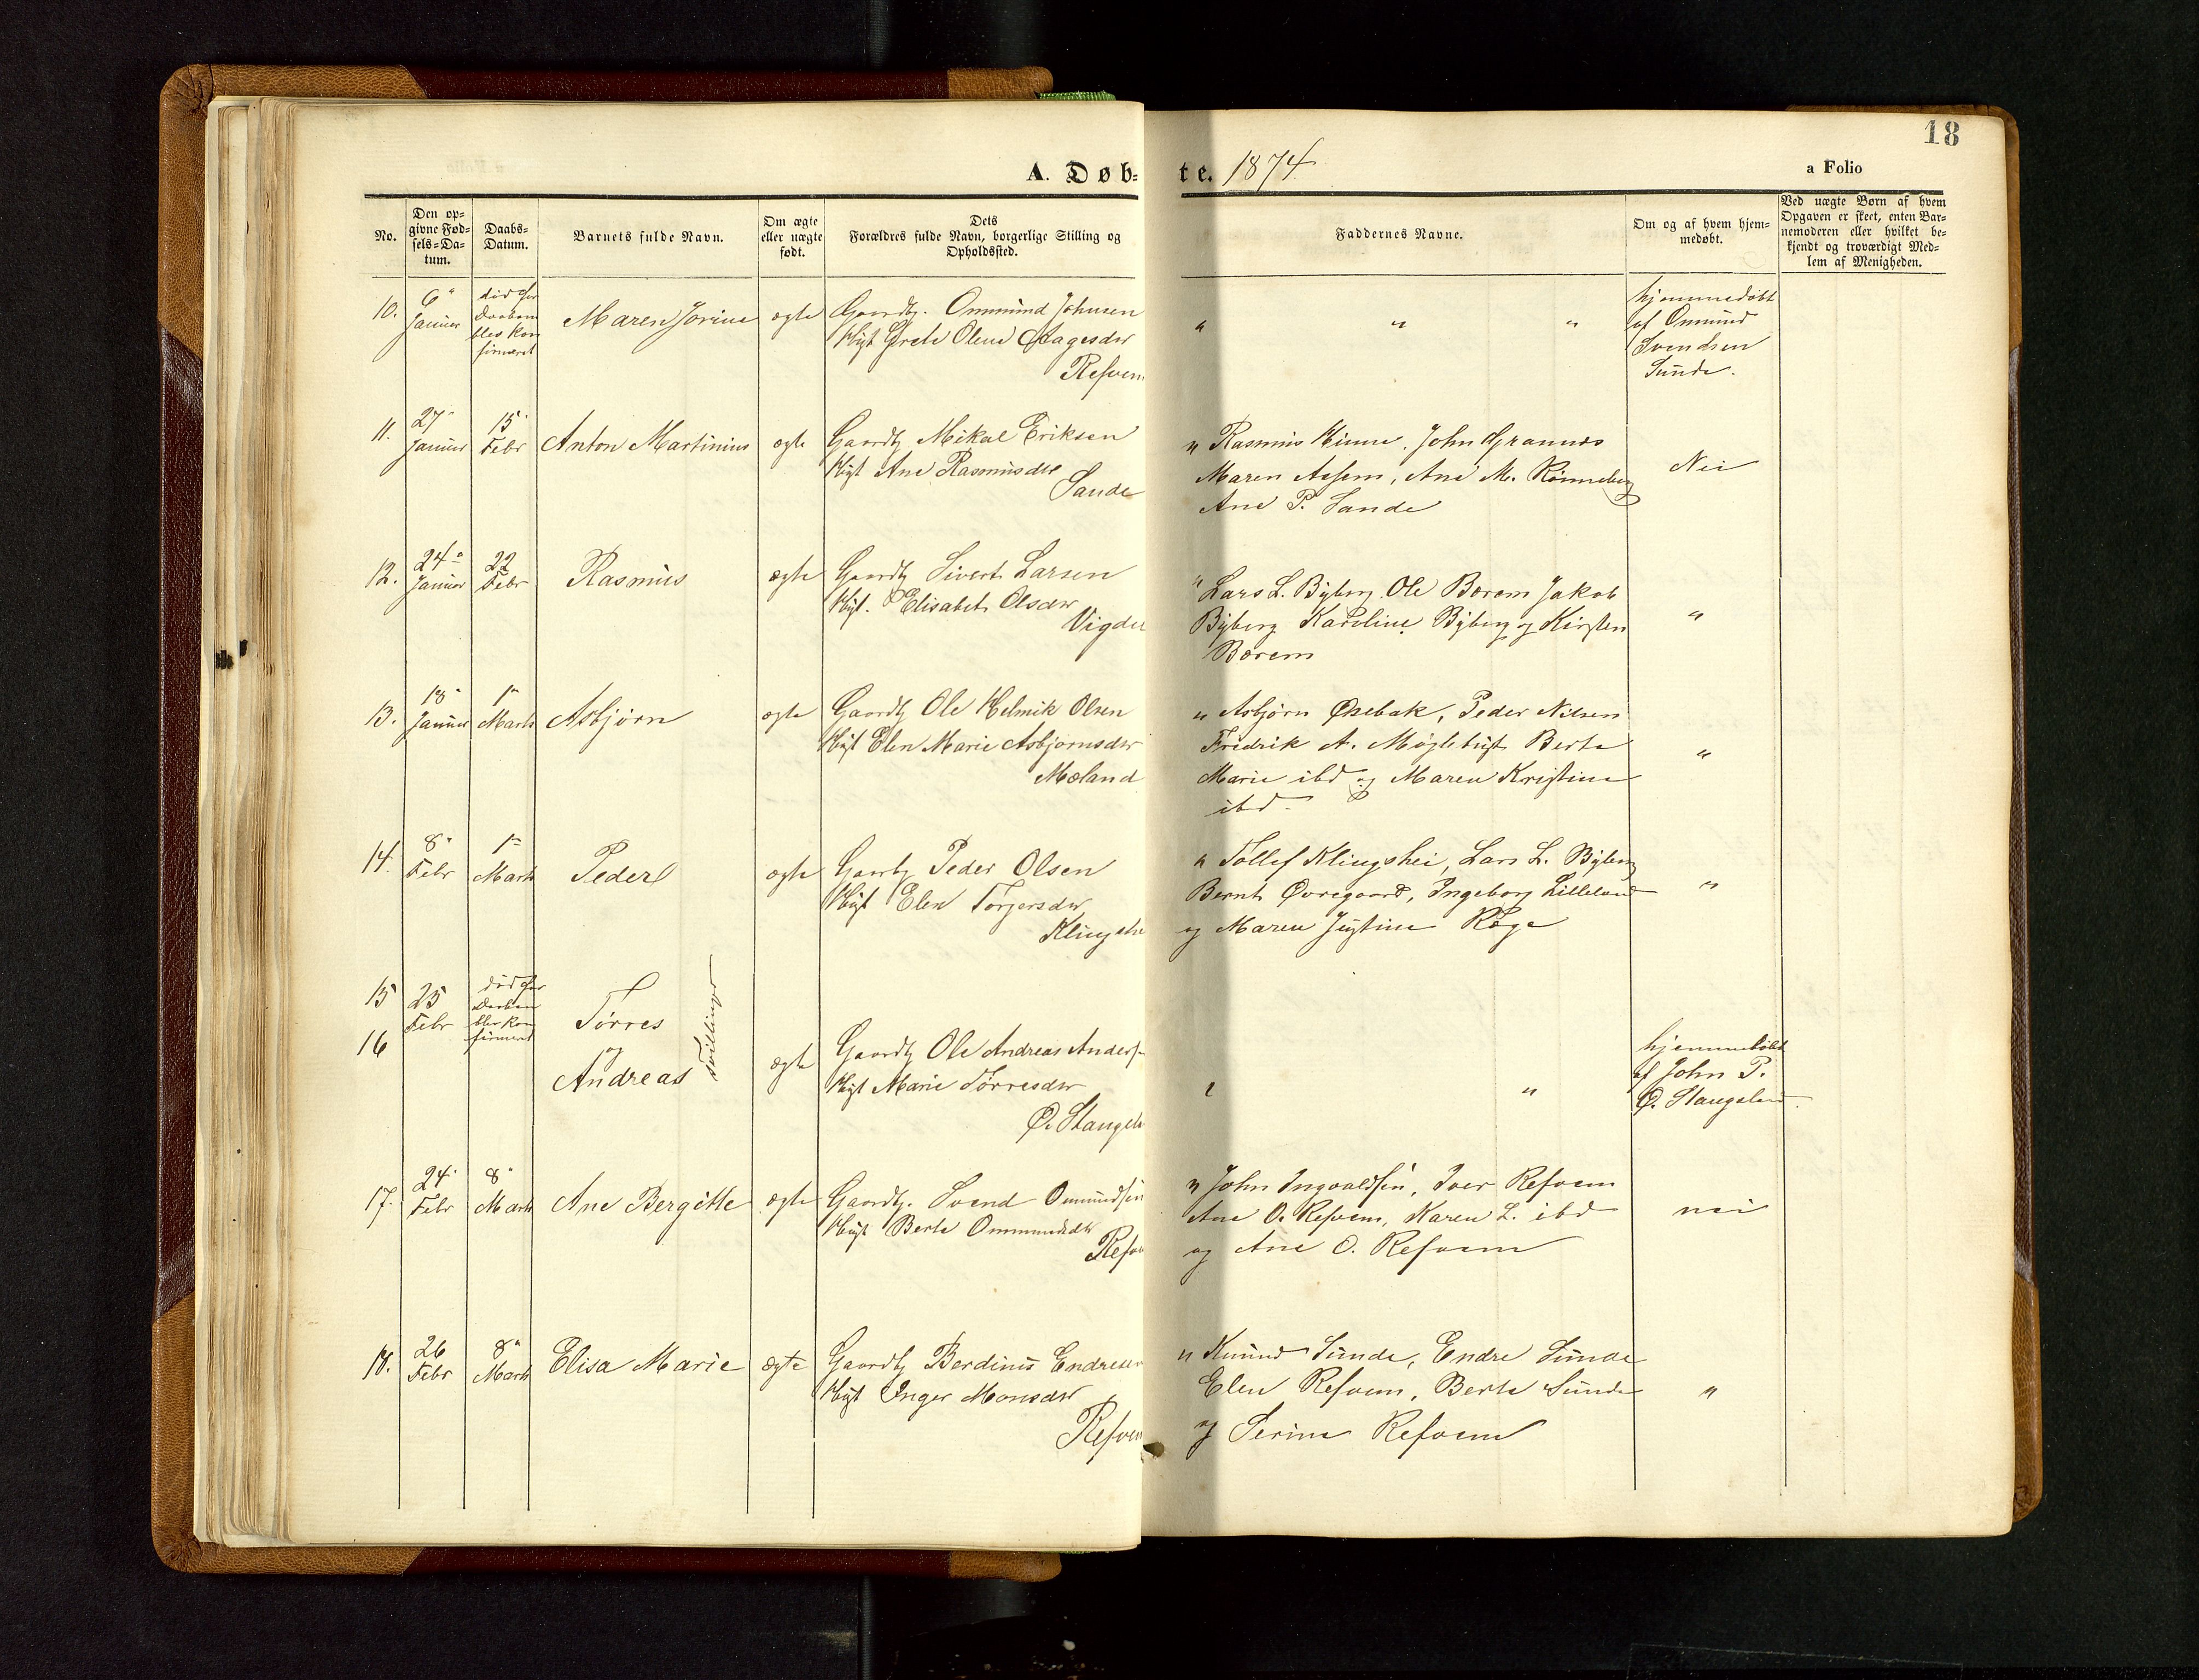 18
A. Døb-
te. 1874
a Folio
No.
Den op-
givne Fød-
sels-Da-
tum.
Daabs-
Datum.
Barnets fulde Navn.
Om ægte
eller uægte
født.
Dets
Forældres fulde Navn, borgerlige Stilling og
Opholdssted.
Faddernes Navne.
Om og af hvem hjem-
medøbt.
Ved uægte Børn af hvem
Opgaven er skeet, enten Bar-
nemoderen eller hvilket be-
kjendt og troværdigt Med-
lem af Menigheden.
10.
6"
Januar
død før
Daaben
blev kon
firmeret
Maren Jorine
ægte
Gaardbr. Ommund Johnsen
Hust Grete Olene Aagesdtr
Refvem
" " "
hjemmedøbt
af Omund
Svendsen
Sunde.
11.
27"
Januar
15"
Febr
Anton Martinius
ægte
Gaardb Mikal Eriksen
Hust Ane Rasmusdtr
Sande
" Rasmus Hinna, John Grannes
Maren Assem, Ane M. Rønneberg
Ane P. Sande
Nei
12.
24"
Januar
22
Febr
Rasmus
ægte
Gaardb Sivert Larsen
Hust. Elisabet Olsdtr
Vigde
" Lars L. Byberg Ole Børem Jakob
Byberg Karoline Byberg og Kirsten
Børem
"
13.
18"
Januar
1"
Marts
Asbjørn
ægte
Gaardb Ole Helmik Olsen
Hust Elen Marie Asbjørnsdtr
Mæland
" Asbjørn Øksebak, Peder Nilsen
Fredrik A. Møgletust Berte
Marie ibd og Maren Kristine
ibd
"
14.
8"
Febr
1"
Marts
Peder
ægte
Gaardb Peder Olsen
Hust Elen Torgersdtr
Klingshe
" Tollef Klingshei, Lars L. Byberg
Bernt Øvregaard, Ingeborg Lilleland
og Maren Justine Røge
"
15
16
25
Febr
død før
Daaben
blev kon
firmeret
Tørres
og
Andreas
Tvillinger
ægte
Gaardb Ole Andreas Anders
Hust Marie Tørresdtr
Ø. Stangel
"
hjemmedøbt
af John P.
Ø. Stangeland
17.
24"
Febr
8"
Marts
Ane Bergitte
ægte
Gaardb. Svend Omundsen
Hust Berte Ommundsdtr
Refv
" John Ingvaldsen, Iver Refvem
Ane O. Refvem, Karen L. ibd
og Ane O. Refvem
nei
18.
26
Febr
8"
Marts
Elisa Marie
ægte
Gaardb Berdinus Endresen
Hust Inger Monsdtr
Refvem
" Knud Sunde, Endre Sunde
Elen Refvem, Berte Sunde
og Serine Refvem
"